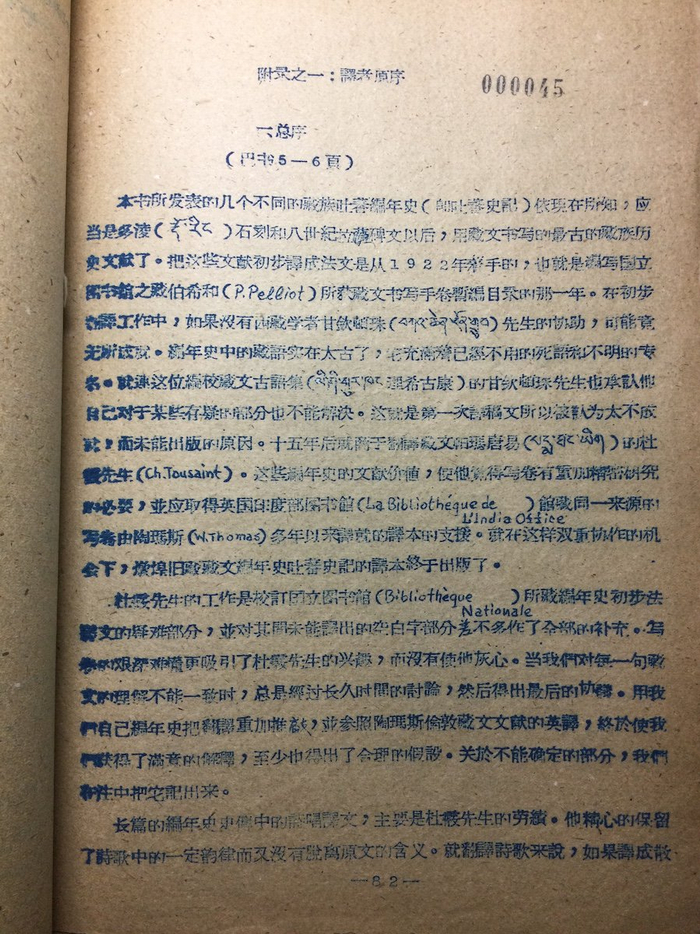 附录之一：譯者原序
000045
一、总序
（巴书5—6頁）
本书所发表的几个不同的藏族吐蕃編年史（即吐蕃史記）依現在所知，应
当是多淩（）石刻和八世紀拉薩碑文以后，用藏文书写的最古的藏族历
史文献了。把这些文献初步譯成法文是从1922年举手的，也就是編写国立
图书館之藏伯希和（P.Pelliot）所获藏文书写手卷暫編目录的那一年。在初步
翻譯工作中，如果沒有西藏学者甘欽頓珠（）先生的协助，可能竟
无所成就。編年史中的藏語实在太古了，它充滿着已經不用的死語和不明的专
名。就連这位編校藏文古語集（理希古康）的甘欽頓珠先生也承認他
自己对于某些有疑的部分也不能解决。这就是第一次譯稿文所以被認为太不成
就，而未能出版的原因。十五年后就商于翻譯藏文帕瑪唐易（）的杜
散先生（Ch.Tousaint）。这些編年史的文献价值，使他覚得写卷有重加精密研究
的必要，並应取得英国印度部图书館（La Bibliothèque de L'India Office）館藏同一来源的
写卷由陶瑪斯（W.Thomas）多年以来譯就的譯本的支援。就在这样双重协作的机
会下，燉煌旧藏藏文編年史吐蕃史記的譯本終于出版了。
杜散先生的工作是校訂国立图书館（Bibliothèque Nationale）所藏編年史初步法
譯文的疑难部分，並对其間未能譯出的空白字部分差不多作了全部的补充。写
卷的艰深难懂更吸引了杜散先生的兴趣，而沒有使他灰心。当我們对每一句藏
文的理解不能一致时，总是經过长久时間的討論，然后得出最后的协議。用我
們自己編年史把翻譯重加推敲，並参照陶瑪斯倫敦藏文文献的英譯，終於使我
們获得了滿意的解釋，至少也得出了合理的假設。关於不能确定的部分，我們
在注中把它記出来。
长篇的編年史史傳中的詩唱譯文，主要是杜散先生的劳績。他精心的保留
了詩歌中的一定韵律而又沒有脫离原文的含义。就翻譯詩歌来說，如果譯成散
—82—